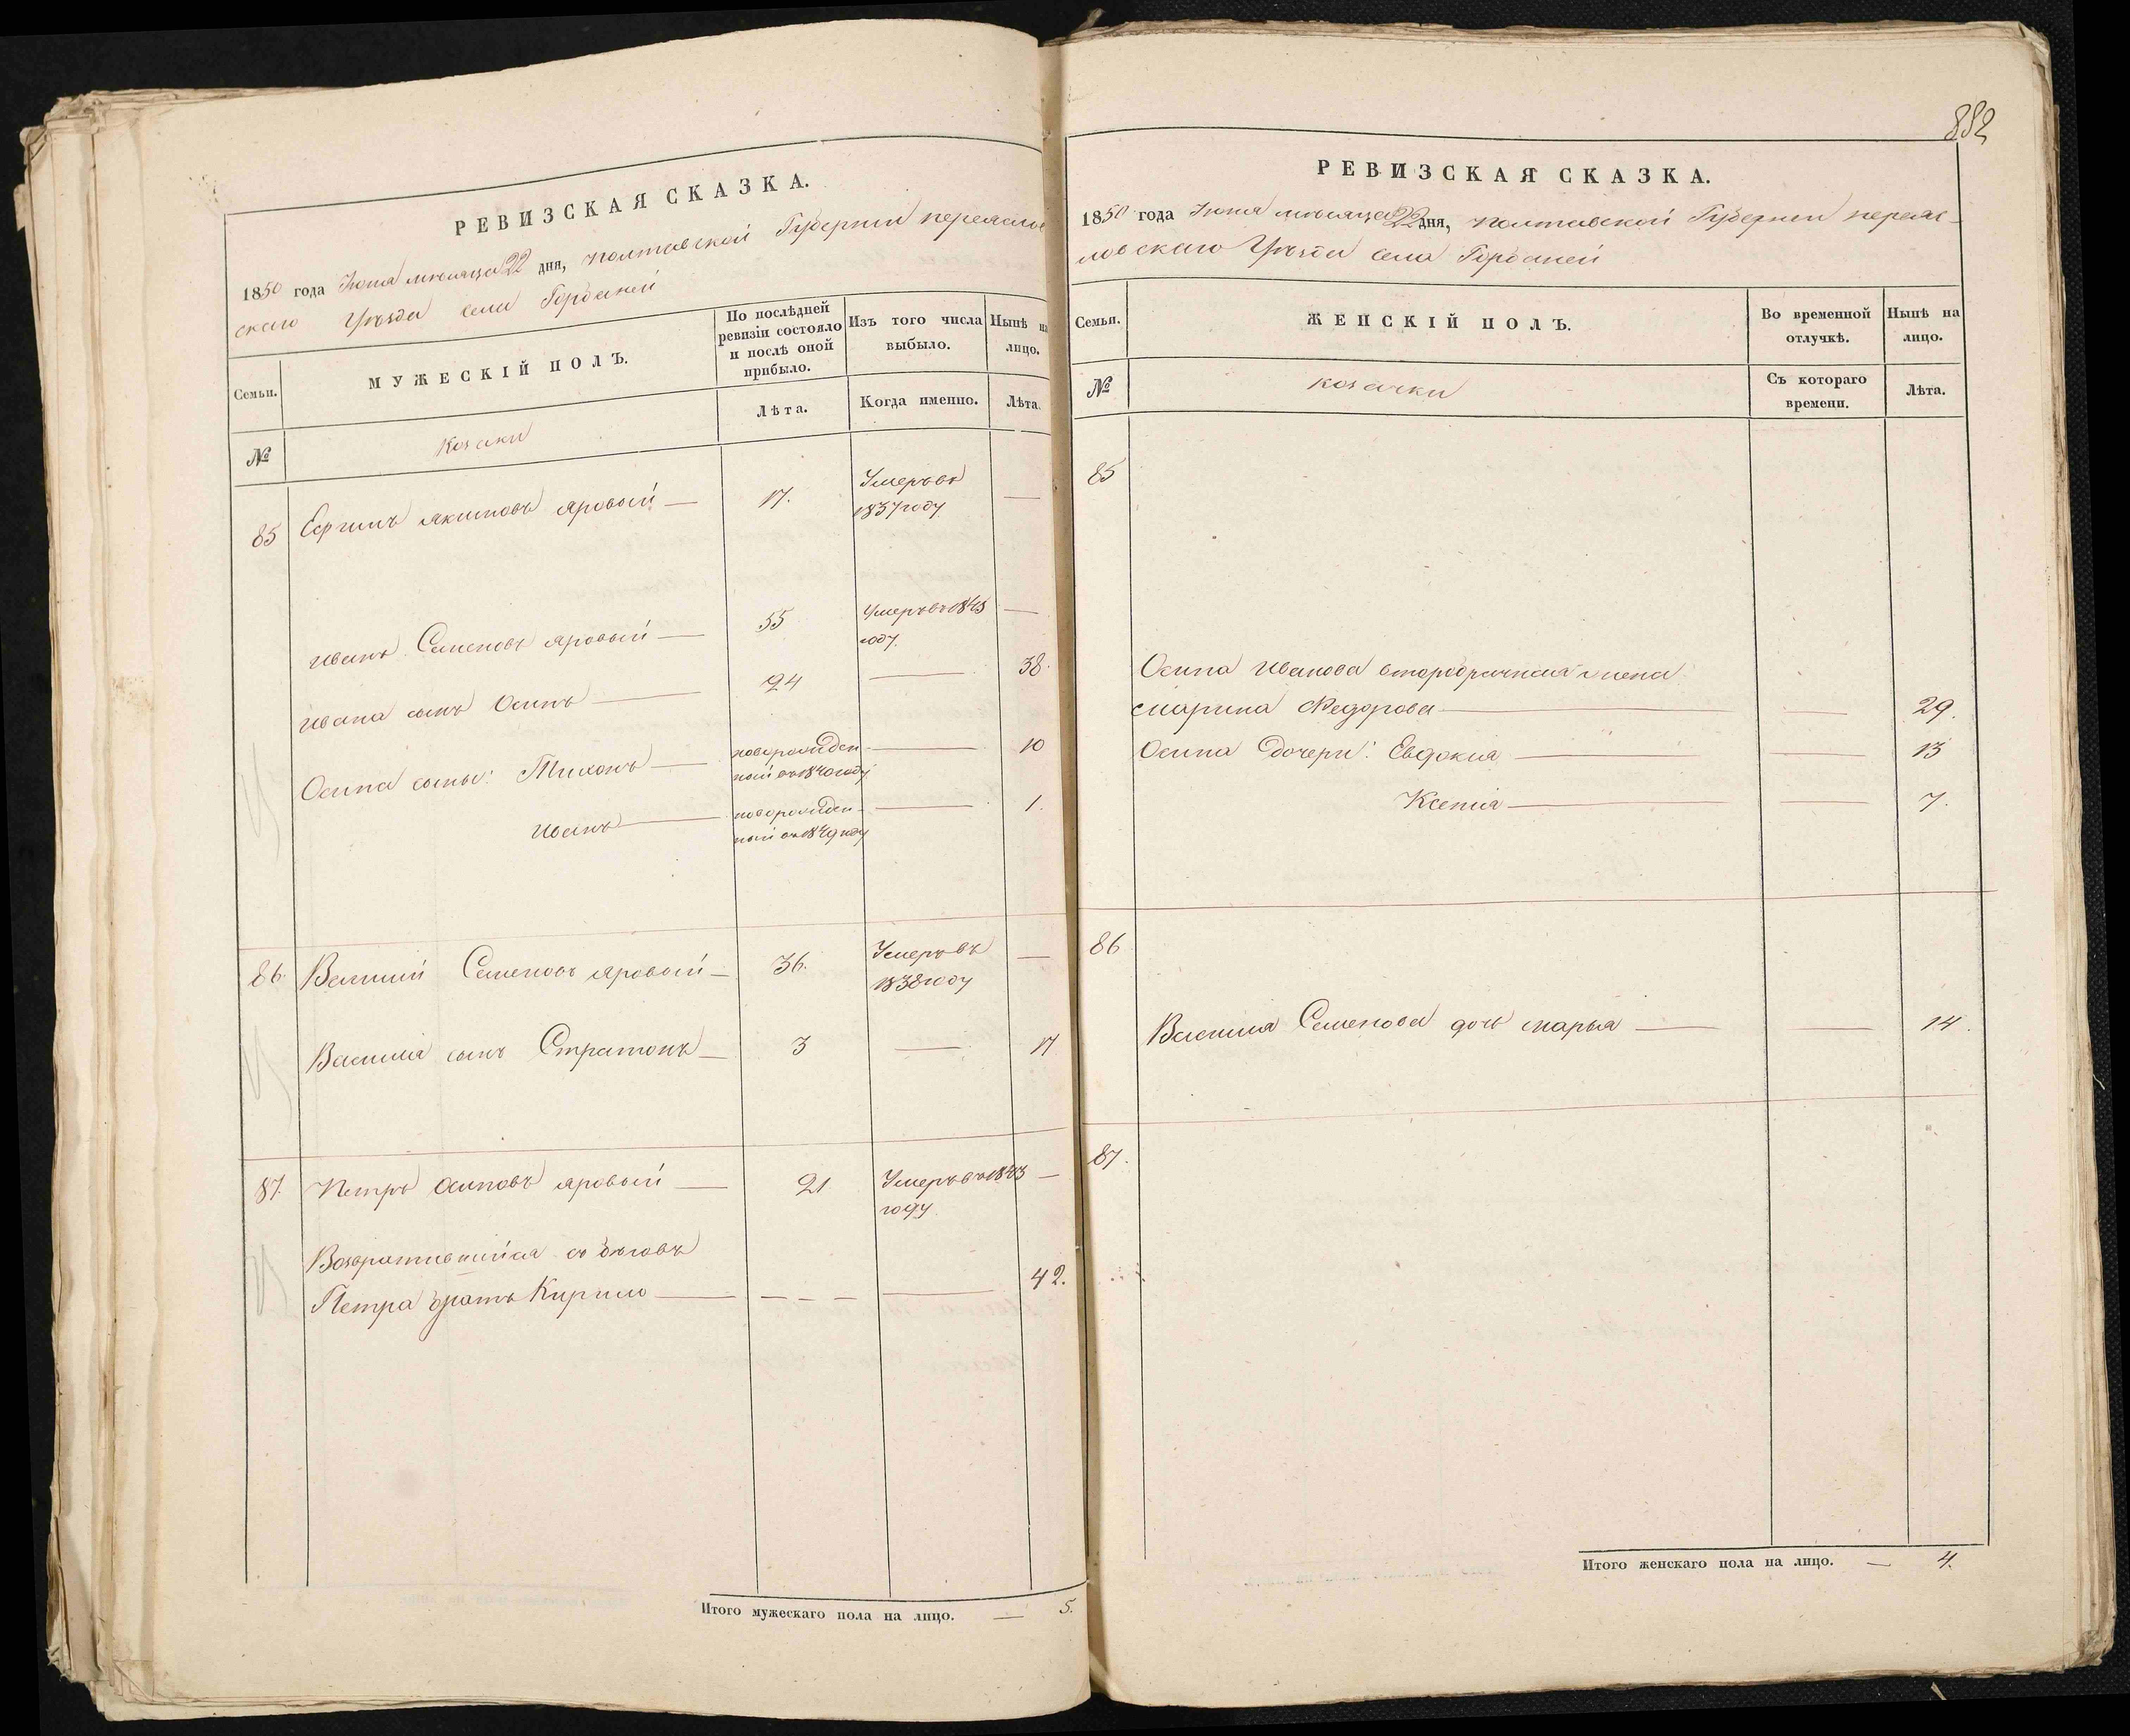 РЕВИЗСКАЯ СКАЗКА.
1850 года Июня месяца 22 дня, Полтавской Губернии переяслов
скаго Уезда села Горбаней
Семьи. МУЖЕСКІЙ ПОЛЪ. По послѣдней ревизіи состояло и послѣ оной прибыло. Изъ того числа выбыло. Нынѣ на лицо.
№ Козаки Лѣта. Когда именно. Лѣта.
85 Якимовъ Яровый — 17. Умеръ въ —
1837 году
Иванъ Семеновъ Яровый — 55 Умеръ въ 1845 —
году.
Ивана сынъ Осипъ — 24 — 38.
Осипа сыны: Тихонъ — новорожден- — 10
ный въ 1840 году
Иванъ — новорожден- — 1.
ный въ 1849 году
86. Василий Семеновъ Яровый — 36. Умеръ въ —
1838 году
Василия сынъ Стратонъ — 3 — 17
87. Петръ Осиповъ Яровый — 21 Умеръ въ 1843 —
году
Возвратившийся съ бѣговъ
Петра братъ Кирило — — — — — 42.
Итого мужескаго пола на лицо. — 5.
852
РЕВИЗСКАЯ СКАЗКА.
1850 года Июня месяца 22 дня, Полтавской Губернии переяс-
ловскаго Уезда села Горбаней
Семьи. ЖЕНСКІЙ ПОЛЪ. Во временной отлучкѣ. Нынѣ на лицо.
№ козачки Съ котораго времени. Лѣта.
85
Осипа Иванова второбрачная жена
Марина Федорова — — 29.
Осипа дочери: Евдокия — — 13
Ксения — — 7.
86
Василия Семенова дочь Марья — — 14.
87.
Итого женскаго пола на лицо. — 4.